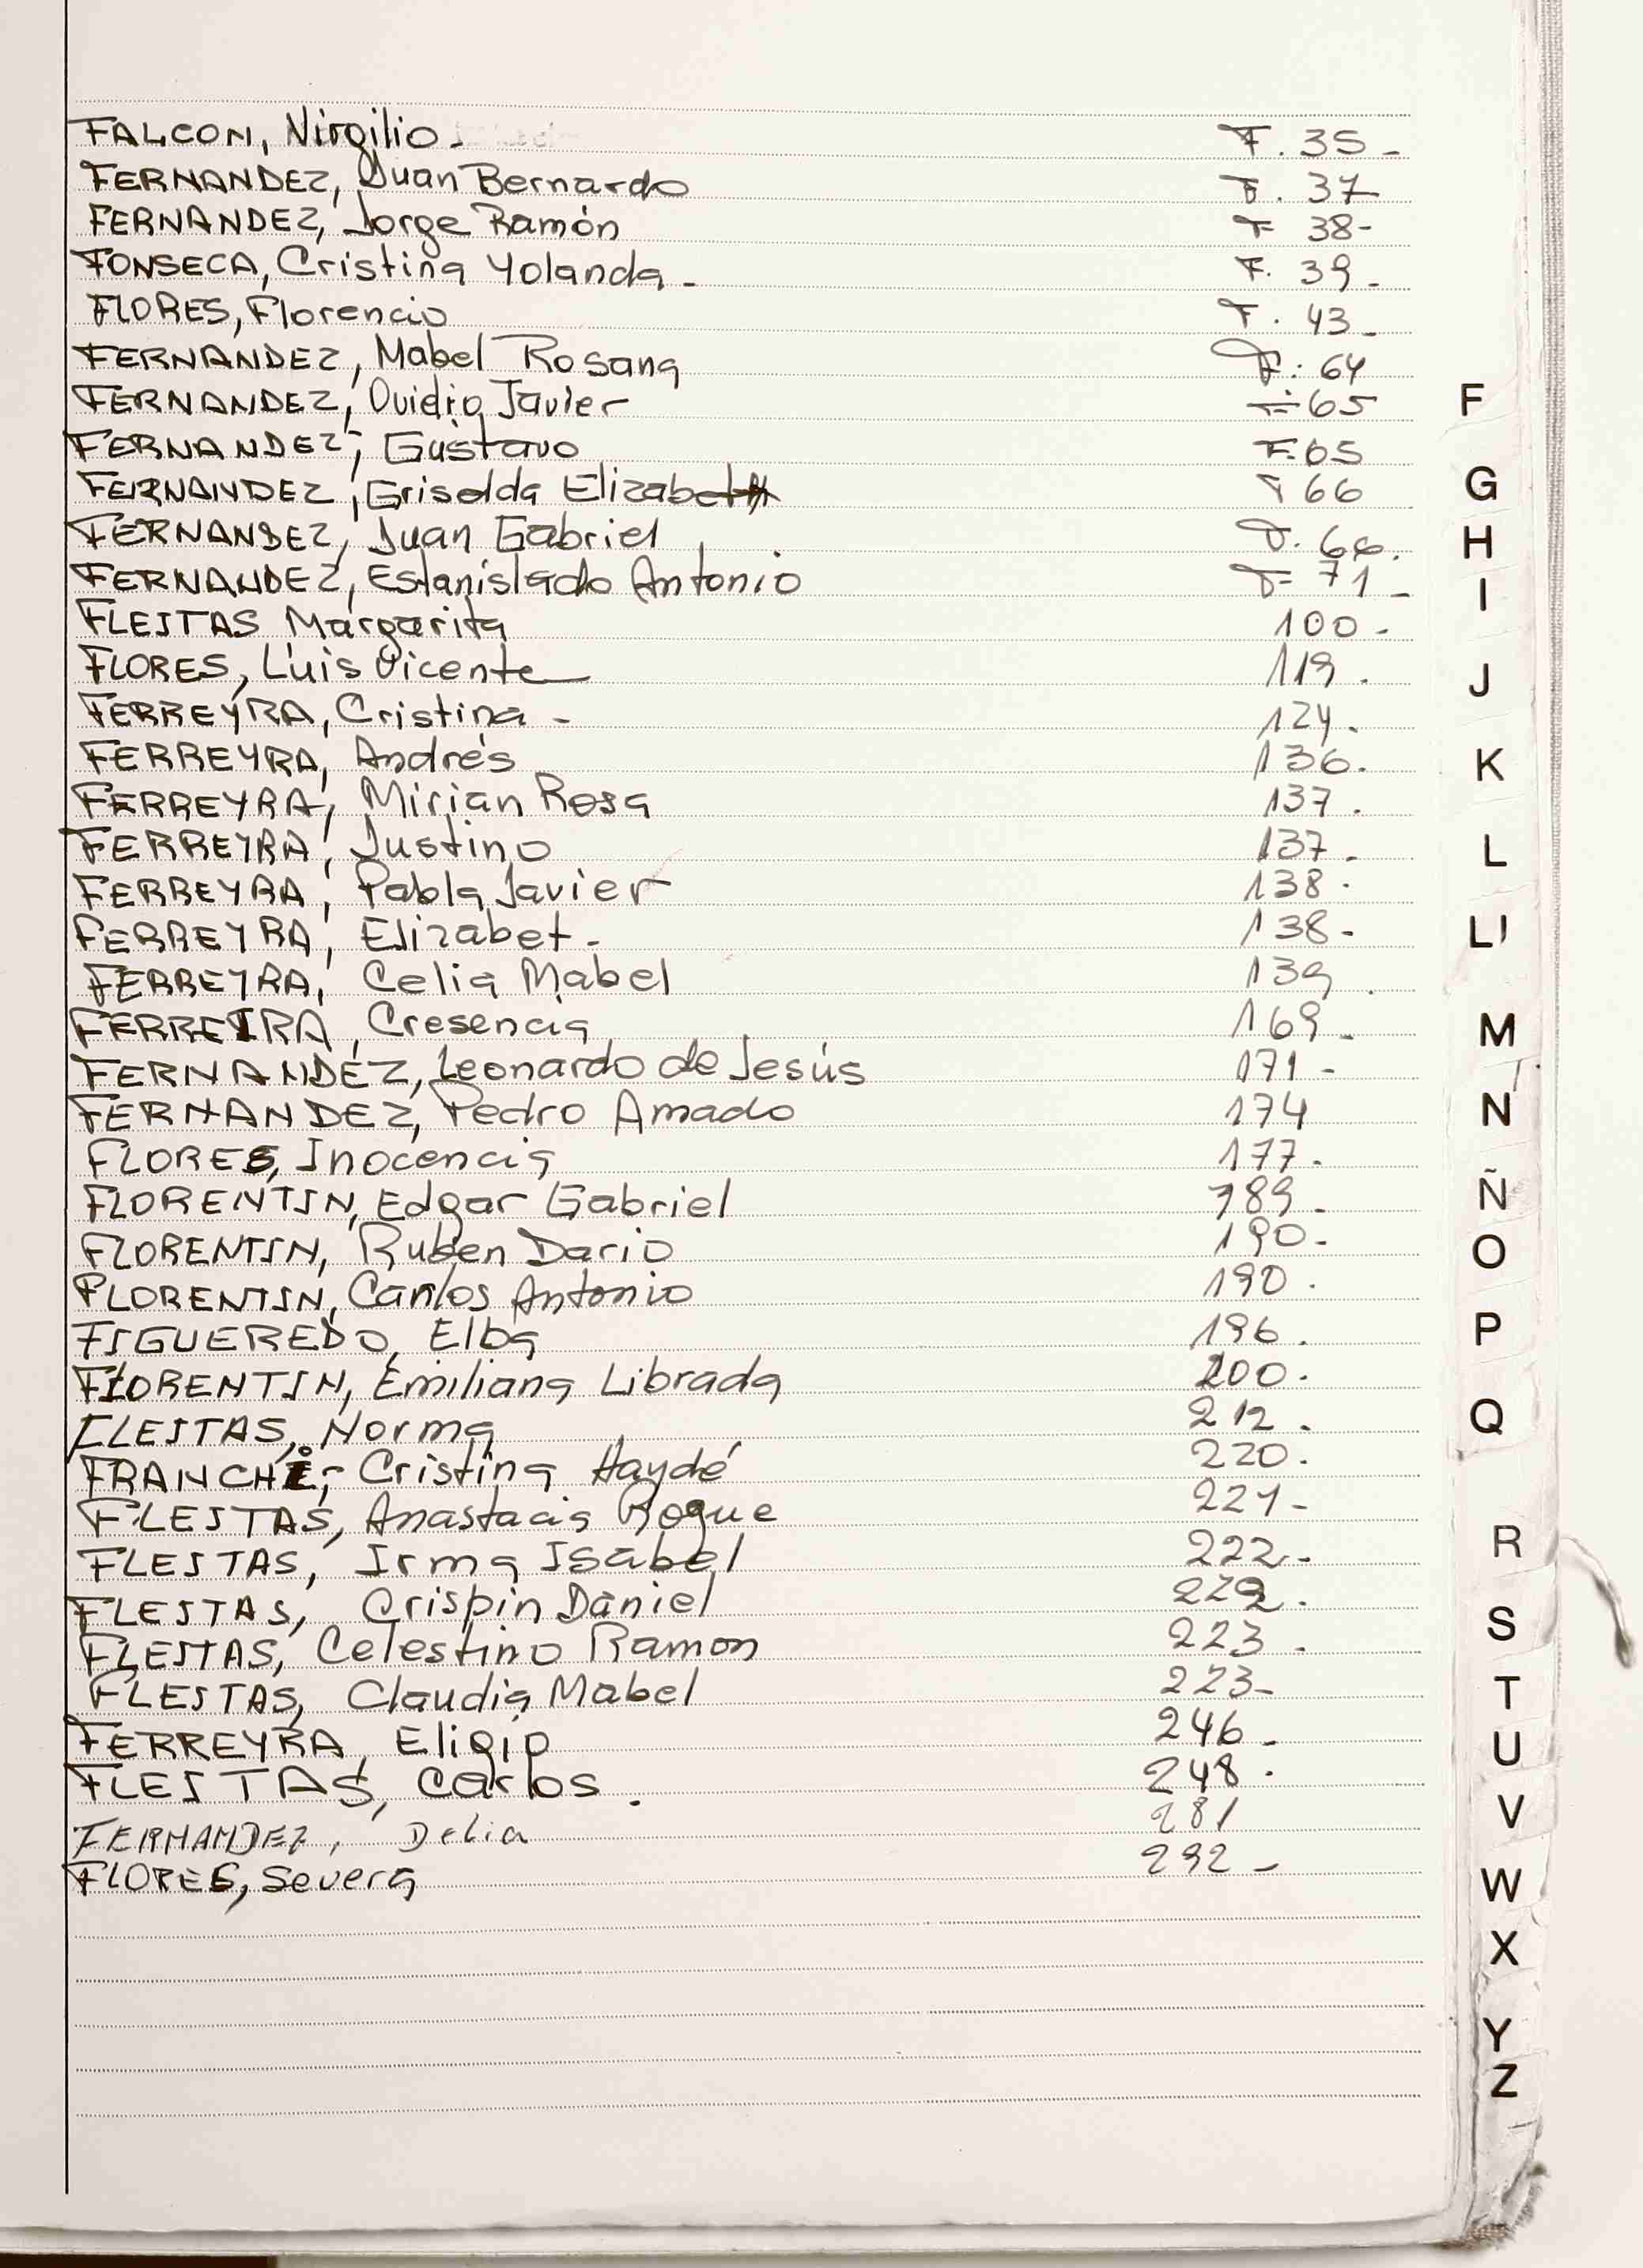 FALCON, Nirgilio. F. 35 -
FERNANDEZ, Juan Bernardo F. 37
FERNANDEZ, Jorge Ramón F 38-
FONSECA, Cristina Yolanda - F. 39 -
FLORES, Florencio F. 43 -
FERNANDEZ, Mabel Rosana F.: 64
FERNANDEZ, Ovidio Javier F 65
FERNANDEZ, Gustavo F. 65
FERNANDEZ, Griselda Elizabeth F 66
FERNANDEZ, Juan Gabriel F. 66.
FERNANDEZ, Estanislado Antonio F= 71 -
FLEITAS Margarita 100 -
FLORES, Luis Vicente 119.
FERREYRA, Cristina - 124.
FERREYRA, Andrés 136.
FERREYRA, Mirian Rosa 137.
FERREYRA, Justino 137.
FERREYRA, Pabla Javier 138.
FERREYRA, Elizabet - 138-
FERREYRA, Celia Mabel 139.
FERREIRA, Cresencia 169 -
FERNANDEZ, Leonardo de Jesús 171 -
FERNANDEZ, Pedro Amado 174
FLORES, Inocencia 177.
FLORENTIN, Edgar Gabriel 189 -
FLORENTIN, Ruben Dario 190-
FLORENTIN, Carlos Antonio 190.
FIGUEREDO, Elba 196.
FLORENTIN, Emiliana Librada 200.
FLEITAS, Norma 212.
FRANCHI, Cristina Haydé 220.
FLEITAS, Anastacia Roque 221-
FLEITAS, Irma Isabel 222-
FLEITAS, Crispin Daniel 222.
FLEITAS, Celestino Ramon 223.
FLEITAS, Claudia Mabel 223-
FERREYRA, Eligio 246 -
FLEITAS, Carlos. 248.
FERNANDEZ, Delia 281
FLORES, Severa 292 -
F
G
H
I
J
K
L
Ll
M
N
Ñ
O
P
Q
R
S
T
U
V
W
X
Y
Z